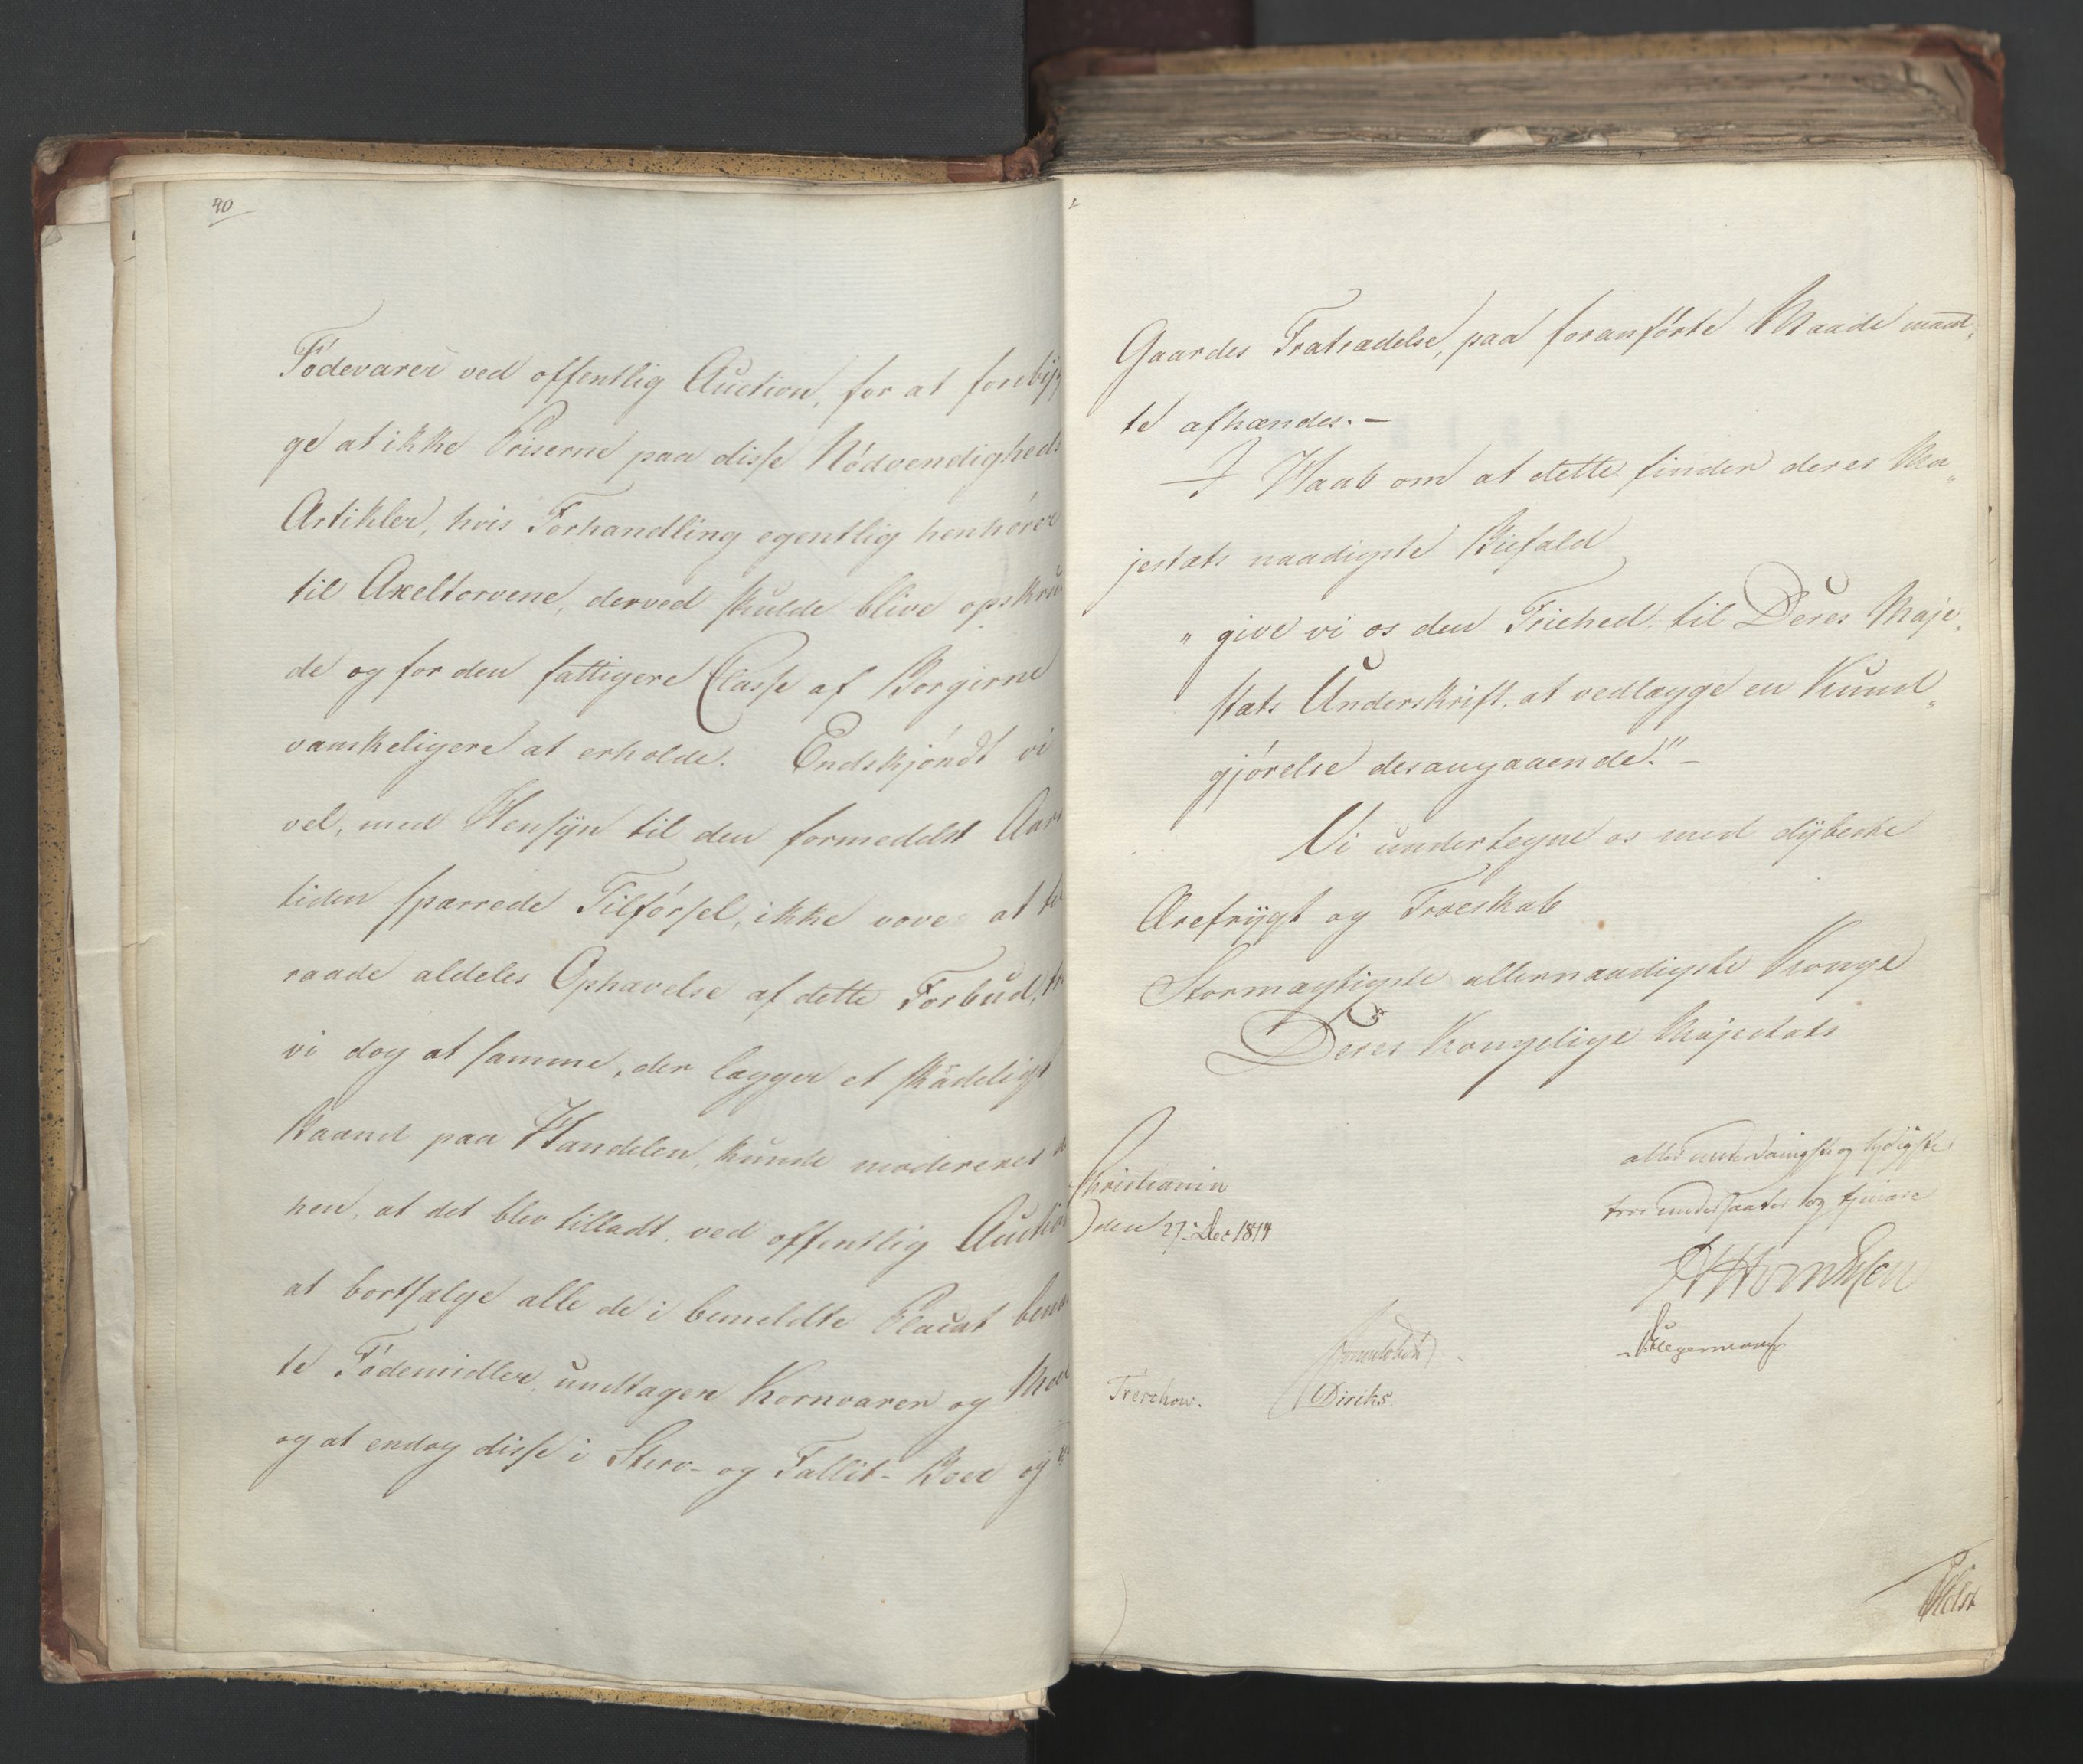 40
Fødevarer ved offentlig Auction, for at forebÿg
ge at ikke Priserne paa disse Nødvendigheds
Artikler, hvis Forhandling egentlig henhører
til Axeltorvene, derved skulde blive opskrue
de og for den fattigere Classe af Borgerne
vanskeligere at erholde. Endskjøndt vi
vel, med Hensÿn til den formedelst Aars
tiden sparrede Tilførsel, ikke vove at til
raade aldeles Ophævelse af dette Forbud, tro
vi dog at samme, der lægger et skadeligt
Baand paa Handelen, kunde modereres
hen, at det blev tilladt, ved offentlig Auction
at bortsælge alle de i bemeldte Placat benæ
te Fødemidler, undtagen Kornvarer og Meel
og at endog disse i Sterv- og Fallit- Boer og
Gaardes Fratrædelse, paa foranførte Maade maat,
te afhændes. —
I Haab om at dette finder deres Ma„
jestæts naadigste Bifald
„ give vi os den Friehed, til Deres Maje„
stæts Underskrift, at vedlægge en Kund„
gjørelse desangaaende." —
Vi undertegne os med dÿbeste
Ærefrÿgt og Troeskab
Stormægtigste allernaadigste Konge
Deres Kongelige Majestæts
allerunderdanigste og lydigste
troe undersaatter og tjenere
Christiania
den 27. Dec 1814
Sommerhielm
Hegermann
Treschow.
Diriks.
Holst